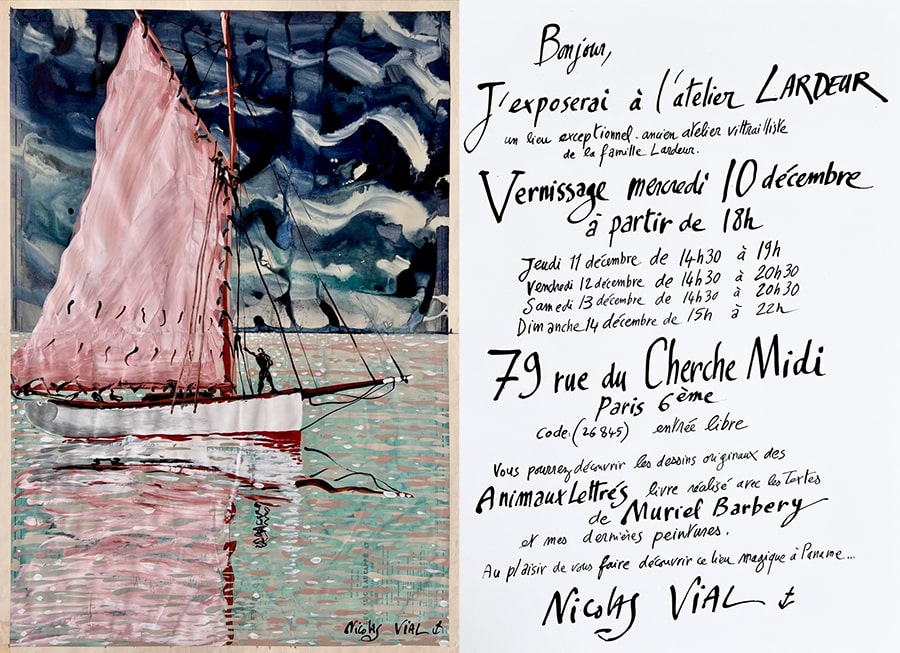 Bonjour,
J'exposerai à l'atelier LARDEUR
un lieu exceptionnel - ancien atelier vittrailliste
de la famille Lardeur.
Vernissage mercredi 10 décembre
à partir de 18h
Jeudi 11 décembre de 14h30 à 19h
Vendredi 12 décembre de 14h30 à 20h30
Samedi 13 décembre de 14h30 à 20h30
Dimanche 14 décembre de 15h à 22h
79 rue du Cherche Midi
Paris 6ème
code: (26845) entrée libre
Vous pourrez découvrir les dessins originaux des
Animaux Lettrés livre réalisé avec les Textes
de Muriel Barbery
et mes dernières peintures.
Au plaisir de vous faire découvrir ce lieu magique à Paname...
Nicolas VIAL
Nicolas VIAL